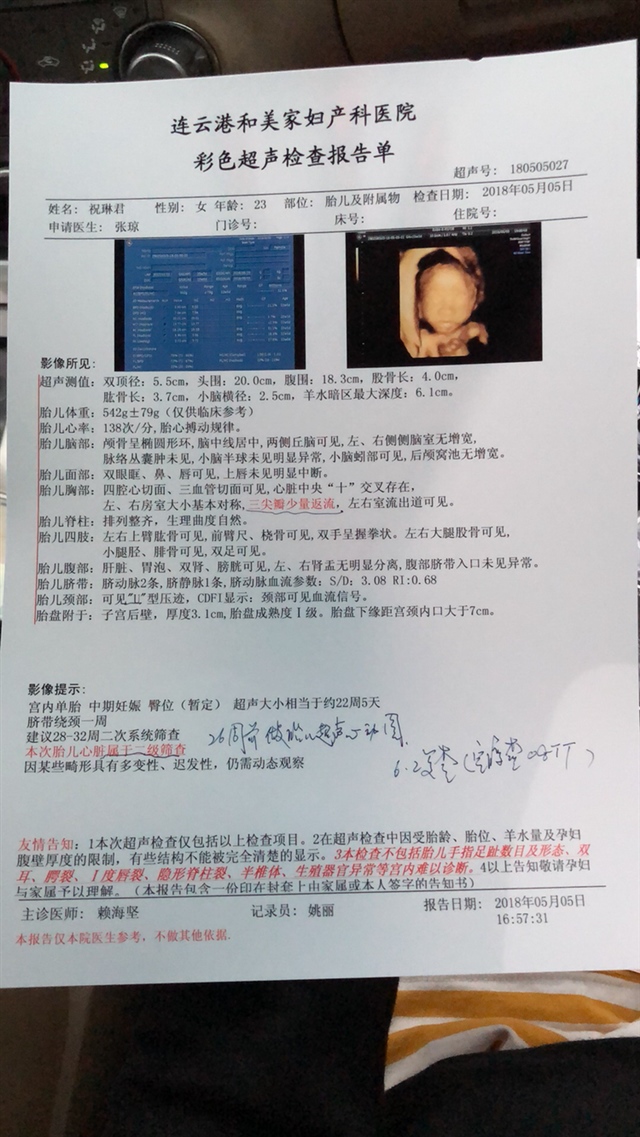 连云港和美家妇产科医院
彩色超声检查报告单
超声号: 180505027
姓名: 祝琳君 性别: 女 年龄: 23 部位: 胎儿及附属物 检查日期: 2018年05月05日
申请医生: 张琼 门诊号: 床号: 住院号:
影像所见:
超声测值: 双顶径: 5.5cm, 头围: 20.0cm, 腹围: 18.3cm, 股骨长: 4.0cm,
肱骨长: 3.7cm, 小脑横径: 2.5cm, 羊水暗区最大深度: 6.1cm。
胎儿体重: 542g±79g(仅供临床参考)
胎儿心率: 138次/分, 胎心搏动规律。
胎儿脑部: 颅骨呈椭圆形环, 脑中线居中, 两侧丘脑可见, 左、右侧侧脑室无增宽,
脉络丛囊肿未见, 小脑半球未见明显异常, 小脑蚓部可见, 后颅窝池无增宽。
胎儿面部: 双眼眶、鼻、唇可见, 上唇未见明显中断。
胎儿胸部: 四腔心切面、三血管切面可见, 心脏中央“十”交叉存在,
左、右房室大小基本对称, 三尖瓣少量返流, 左右室流出道可见。
胎儿脊柱: 排列整齐, 生理曲度自然。
胎儿四肢: 左右上臂肱骨可见, 前臂尺、桡骨可见, 双手呈握拳状。左右大腿股骨可见,
小腿胫、腓骨可见, 双足可见。
胎儿腹部: 肝脏、胃泡、双肾、膀胱可见, 左、右肾盂无明显分离, 腹部脐带入口未见异常。
胎儿脐带: 脐动脉2条, 脐静脉1条, 脐动脉血流参数: S/D: 3.08 RI:0.68
胎儿颈部: 可见"U"型压迹, CDFI显示: 颈部可见血流信号。
胎盘附于: 子宫后壁, 厚度3.1cm, 胎盘成熟度Ⅰ级。胎盘下缘距宫颈内口大于7cm。
影像提示:
宫内单胎 中期妊娠 臀位(暂定) 超声大小相当于约22周5天
脐带绕颈一周
建议28-32周二次系统筛查
26周前做胎儿超声心动图
本次胎儿心脏属于二级筛查
因某些畸形具有多变性、迟发性, 仍需动态观察
友情告知: 1本次超声检查仅包括以上检查项目。2在超声检查中因受胎龄、胎位、羊水量及孕妇
腹壁厚度的限制, 有些结构不能被完全清楚的显示。3本检查不包括胎儿手指足趾数目及形态、双
耳、腭裂、Ⅰ度唇裂、隐形脊柱裂、半椎体、生殖器官异常等宫内难以诊断。4以上告知敬请孕妇
与家属予以理解。(本报告包含一份印在封套上由家属或本人签字的告知书)
主诊医师: 赖海坚 记录员: 姚丽 报告日期: 2018年05月05日
16:57:31
本报告仅本院医生参考, 不做其他依据.